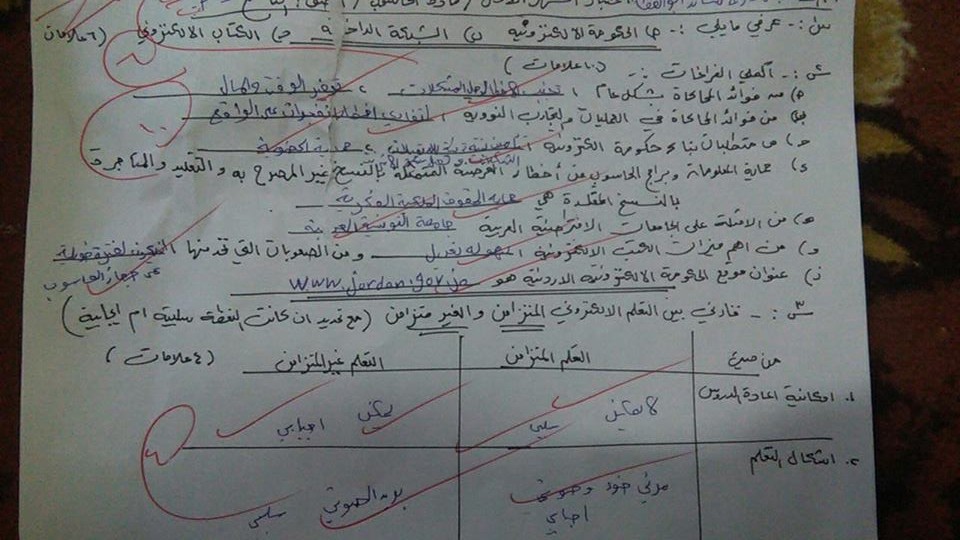 س١:- عرفي مايلي:- أ) الحكومة الالكترونية ب) الشبكة الداخلية ج) الكتاب الالكتروني (٦ علامات)
س٢:- أكملي الفراغات (١٠ علامات)
أ) من فوائد المحاكاة بشكل عام ١ ٢ توفير الوقت والمال
ب) من فوائد المحاكاة في العمليات والتجارب النووية لتفادي أخطار التفجيرات على الواقع
ج) من متطلبات بناء حكومة الكترونية ١ ٢ حماية الخصوصية
د) حماية المعلومات وبرامج الحاسوب من أخطار القرصنة المتمثلة بالنسخ غير المصرح به والتقليد والمتاجرة
بالنسخ المقلدة هي حماية الحقوق الملكية الفكرية
هـ) من الامثلة على الجامعات الافتراضية العربية جامعة التونسية العربية
و) من اهم ميزات الكتب الالكترونية سهولة تعديل ومن الصعوبات التي قد منها السكون لفترة طويلة
على جهاز الحاسوب
ز) عنوان موقع الحكومة الالكترونية الاردنية هو www.jordan.gov.jo
س٣:- قارني بين التعلم الالكتروني المتزامن والغير متزامن (مع تحديد ان كانت النقطة سلبية ام ايجابية)
من حيث التعلم المتزامن التعلم غير المتزامن (٤ علامات)
١. امكانية اعادة الدروس لا يمكن سلبي يمكن ايجابي
٢. اشكال التعلم مرئي وصوتي اجابي بريد الصوتي سلبي